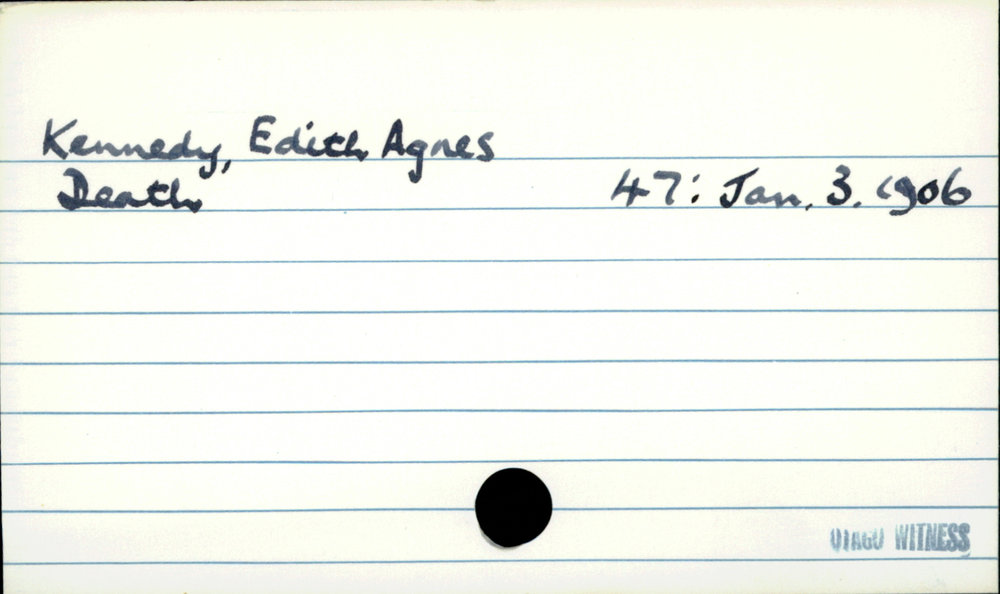 Kennedy, Edith Agnes
Death 47: Jan. 3. 1906
OTAGO WITNESS